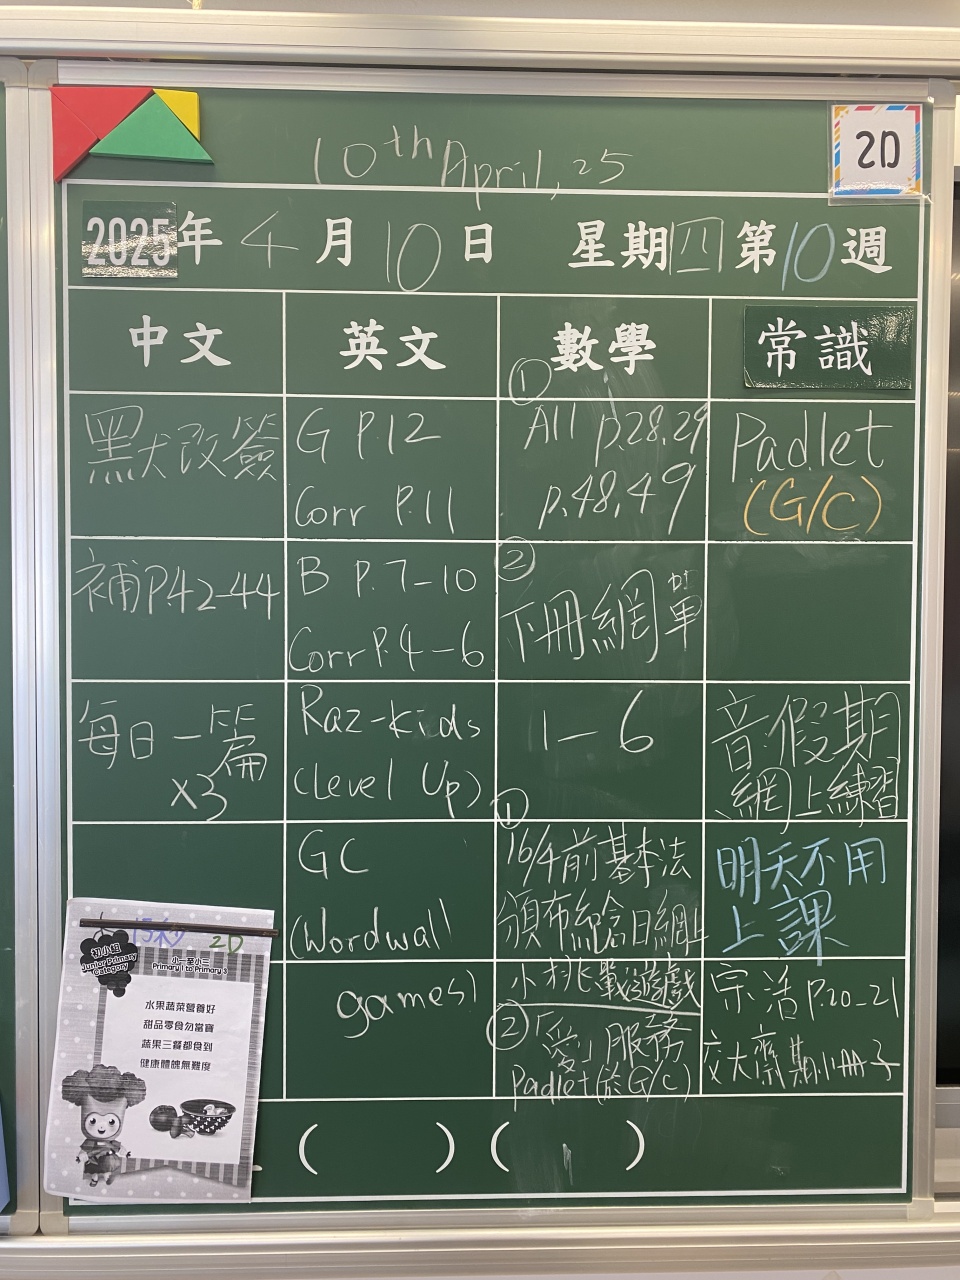 10th April, 25
2D
2025年4月10日 星期四 第10週
中文 英文 數學 常識
默改簽
G P.12
Corr P.11
①
All p.28,29
p.48,49
Padlet
(G/C)
補P.42-44
B P.7-10
Corr P.4-6
②
下冊網單
每日一篇
x3
Raz-kids
(Level Up)
1-6
音:假期
網上練習
GC
(Wordwall
games)
①
16/4前基本法
頒布紀念日網上
小挑戰遊戲
②「愛」服務
Padlet (於G/C)
明天不用
上課
宗:活P.20-21
交大齋期小冊子
( ) ( )
15秒 2D
初小組
Junior Primary
Category
小一至小三
Primary 1 to Primary 3
水果蔬菜營養好
甜品零食勿當寶
蔬果三餐都食到
健康體魄無難度